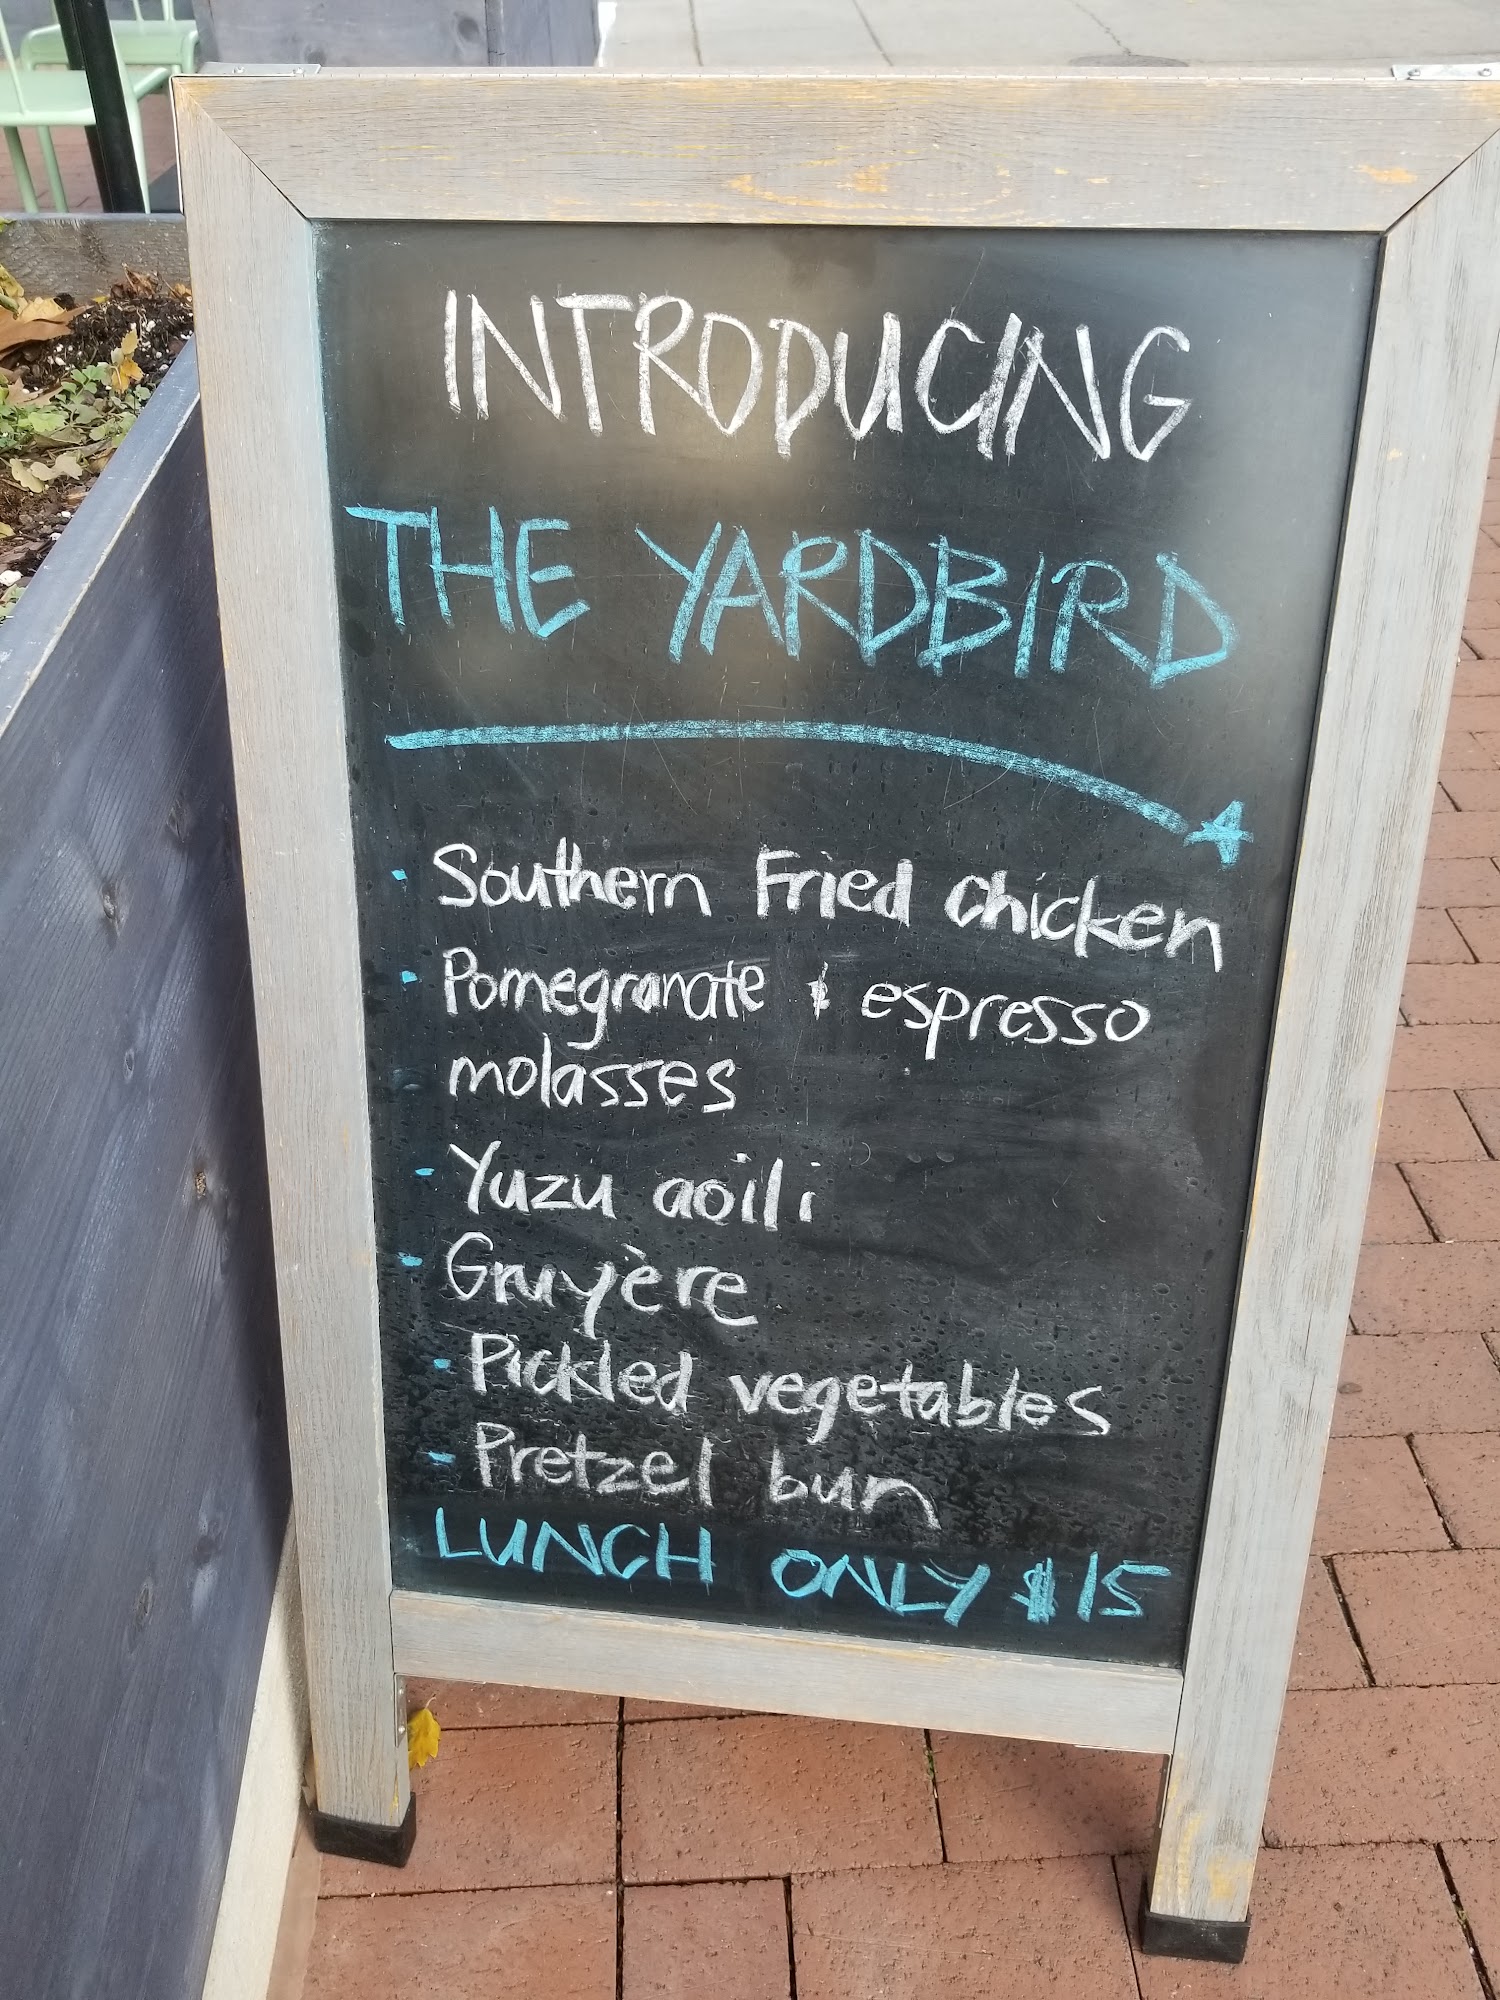 INTRODUCING
THE YARDBIRD
• Southern Fried Chicken
• Pomegranate & espresso
molasses
• Yuzu aoili
• Gruyère
• Pickled vegetables
• Pretzel bun
LUNCH ONLY $15